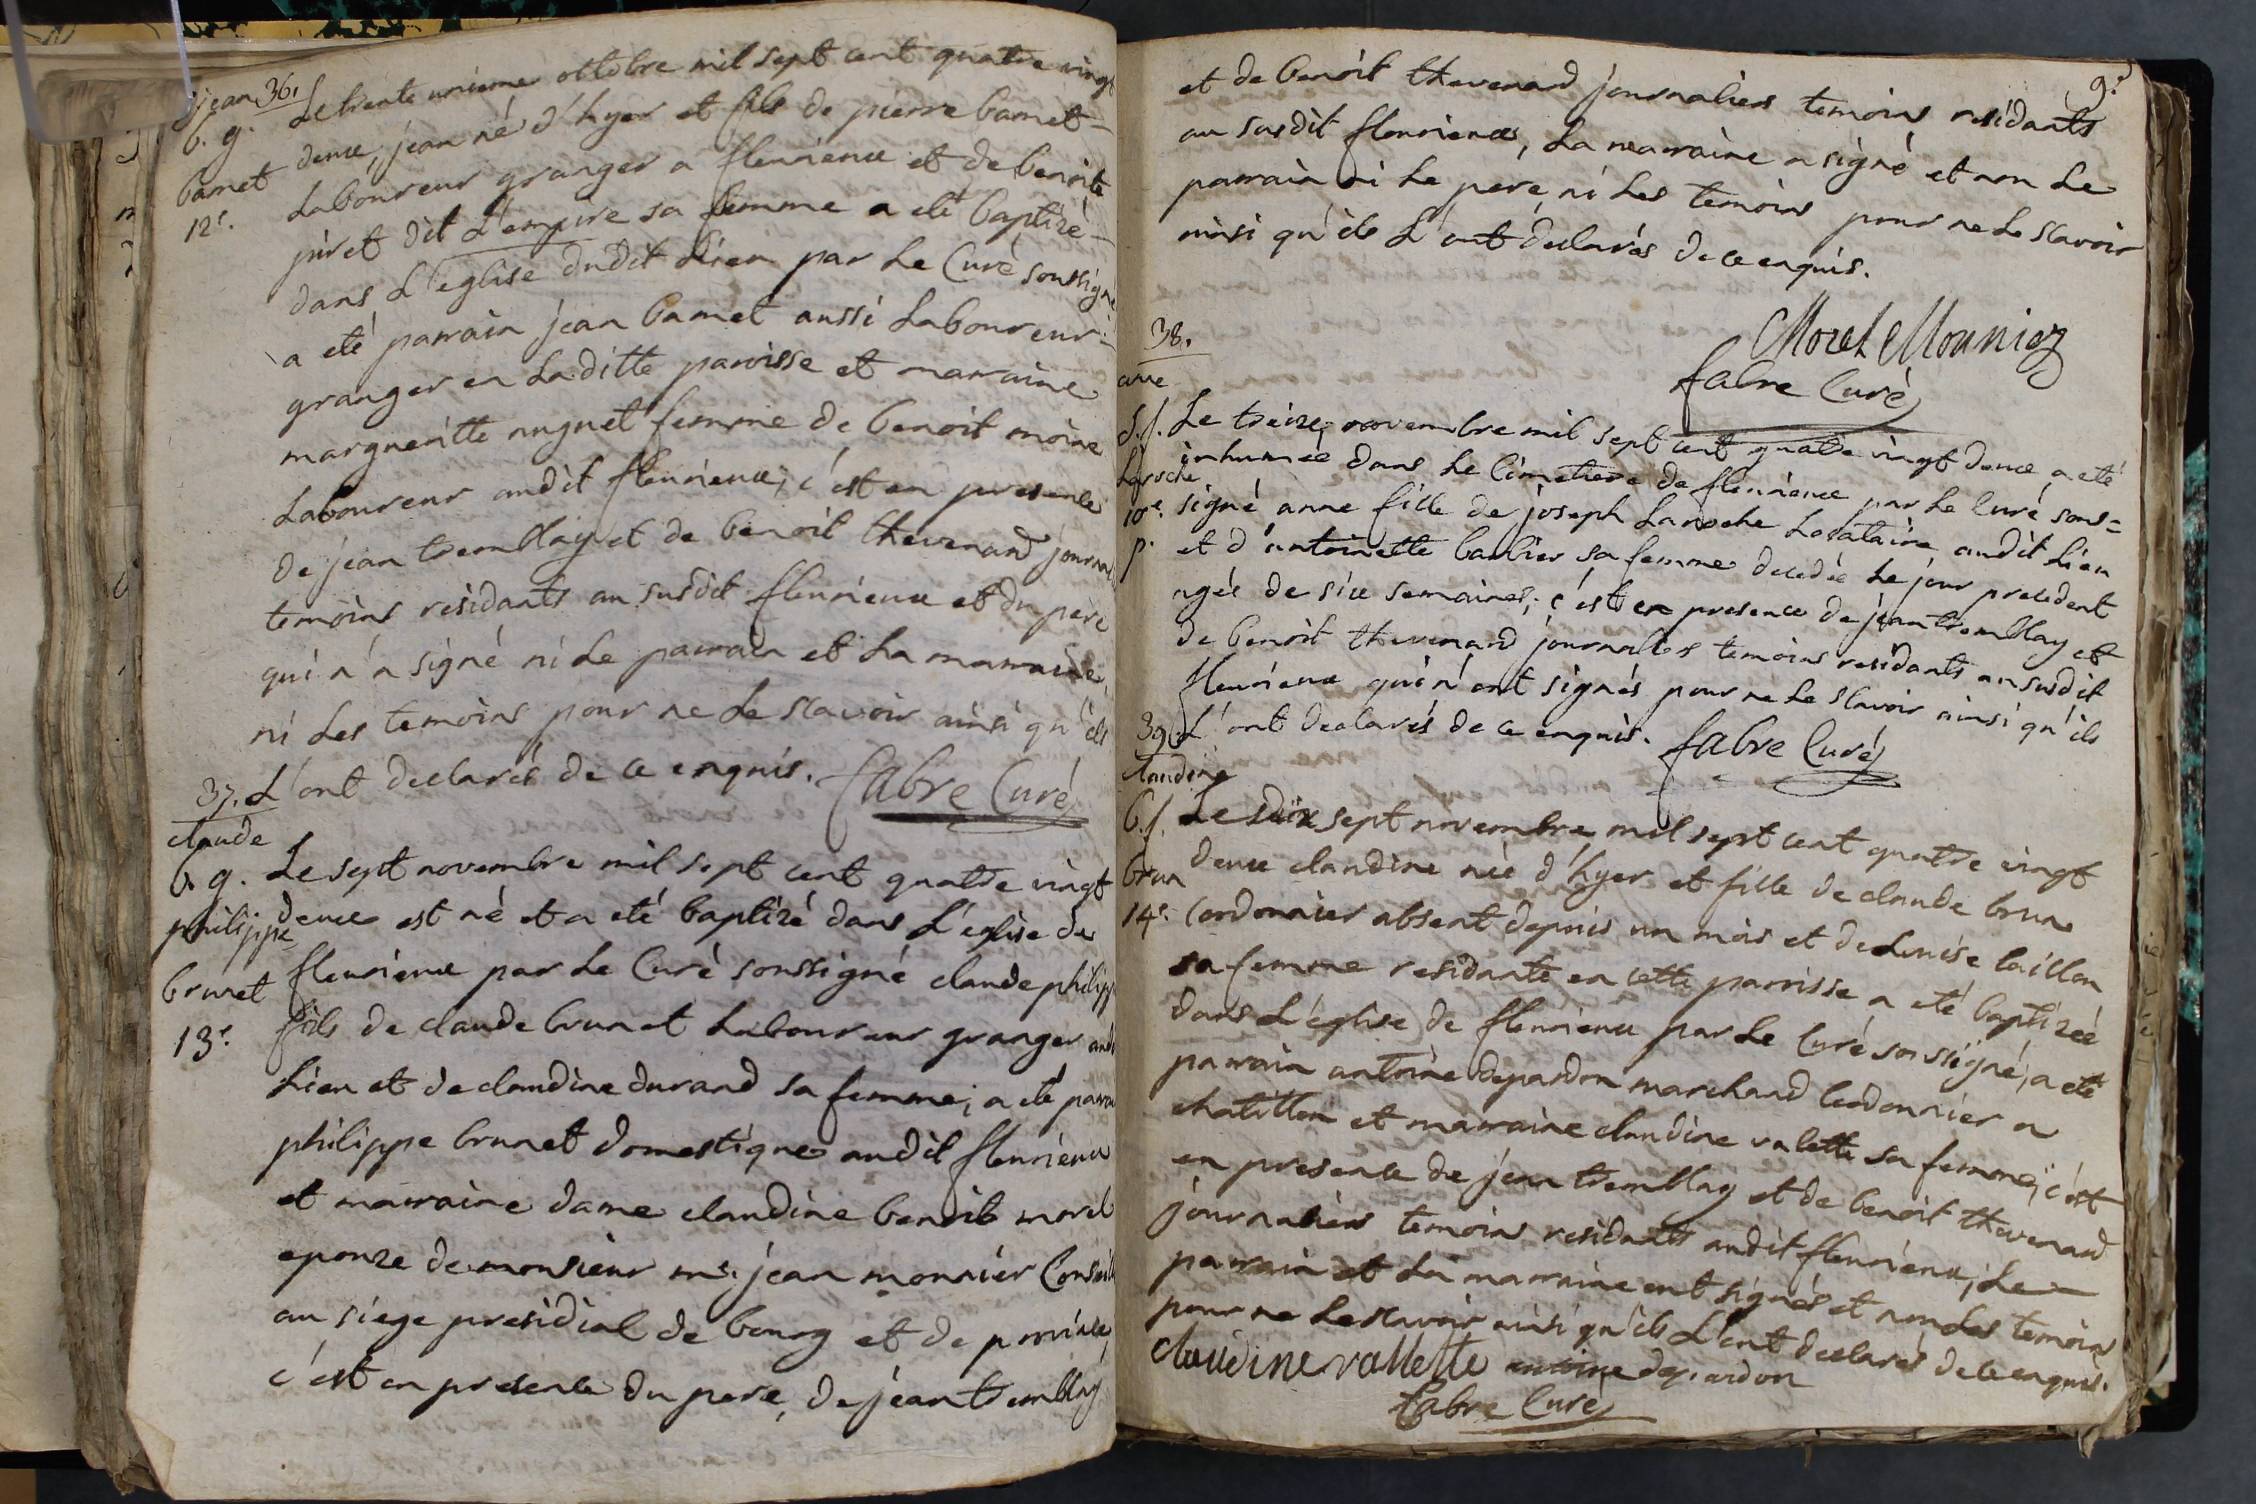 36.
jean
b. g.
bamet
12e.
Le trente unieme octobre mil sept cent quatre vingt
deux, jean né d'hyer et fils de pierre bamet
Laboureur granger a fleurieux et de benoite
piret dit L'empire sa femme a eté baptizé
dans L'eglise dudit Lieu par Le Curé soussigné
a eté parrain jean bamet aussi Laboureur
granger en Laditte paroisse et marraine
margueritte nuguet femme de benoit moine
Laboureur audit fleurieux; c'est en presence
de jean tremblay et de benoit thevenard journal
temoins residants au susdit fleurieux et du pere
qui n'a signé ni Le parrain et La marraine,
ni Les temoins pour ne Le scavoir ainsi qu'ils
L'ont declarés de ce enquis. fabre Curé
37.
claude
b. g.
philippe
brunet
13e.
Le sept novembre mil sept cent quatre vingt
deux est né et a eté baptizé dans L'église de
fleurieux par Le Curé soussigné claude philipp
fils de claude brunet Laboureur granger aud
Lieu et de claudine durand sa femme; a eté parra
philippe brunet domestique audit fleurieux
et marraine dame claudine benoite morel
epouze de monsieur mr. jean monnier Conseill
au siege presidial de bourg et de province,
c'est en presence du pere, de jean tremblay
9e
et de benoit thevenard journaliers temoins residants
au susdit fleurieux, La marraine a signé et non Le
parrain ni Le pere, ni Les temoins pour ne Le scavoir
ainsi qu'ils L'ont declarés de ce enquis.
Morel Monnier
fabre Curé
38.
anne
s. f.
Laroche
10e.
p.
Le treize novembre mil sept cent quatre vingt deux a eté
inhumée dans Le Cimetiere de fleurieux par Le Curé sous=
signé anne fille de joseph Laroche Locataire audit Lieu
et d'antoinette barbier sa femme decedée Le jour precedent
agée de six semaines; c'est en presence de jean tremblay et
de benoit thevenard journaliers temoins residants au susdit
fleurieux qui n'ont signés pour ne Le scavoir ainsi qu'ils
L'ont declarés de ce enquis. fabre Curé
39.
Claudine
b. f.
brun
14e.
Le dix sept novembre mil sept cent quatre vingt
deux claudine née d'hyer et fille de claude brun
Cordonnier absent depuis un mois et de Louise
sa femme residante en cette parroisse a eté baptizée
dans L'église de fleurieux par Le Curé soussigné, a eté
parrain antoine depardon marchand Cordonnier a
chatillon et marraine claudine valette sa femme; c'est
en presence de jean tremblay et de benoit thevenard
journaliers temoins residants audit fleurieux; Le
parrain et La marraine ont signés et non Les temoins
pour ne Le scavoir ainsi qu'ils L'ont declarés de ce enquis.
claudine vallette antoine depardon
fabre Curé